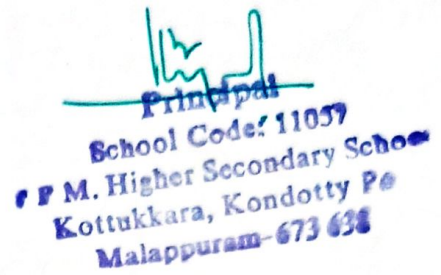 Principal
School Code: 11057
P P M. Higher Secondary School
Kottukkara, Kondotty Po
Malappuram-673 638